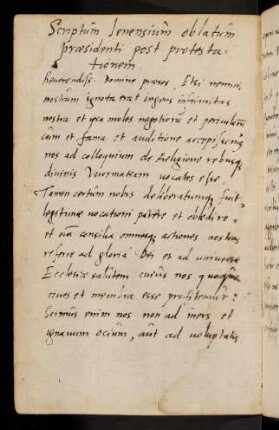 Scriptum Jenensium oblatum
præsidenti post protesta-
tionem
Reverendiss: Domine præses, Etsi nemini
nostrum ignota erat ingens infirmitas
nostra et ipsa moles negotiorum et periculum
cum et fama et auditione accepissemus
nos ad colloquium de Religione rebusque
divinis Vuormatiam vocatos esse,
Tamen certum nobis deliberatumque fuit
legitimæ vocationi parere et obedire,
et omnia consilia omnesque actiones nostras
referre ad gloriam Dei et ad universæ
Ecclesiæ salutem cuius nos quoque
cives et membra esse profitemur:
Scimus enim nos non ad iners et
ignavum ocium, aut ad voluptatis